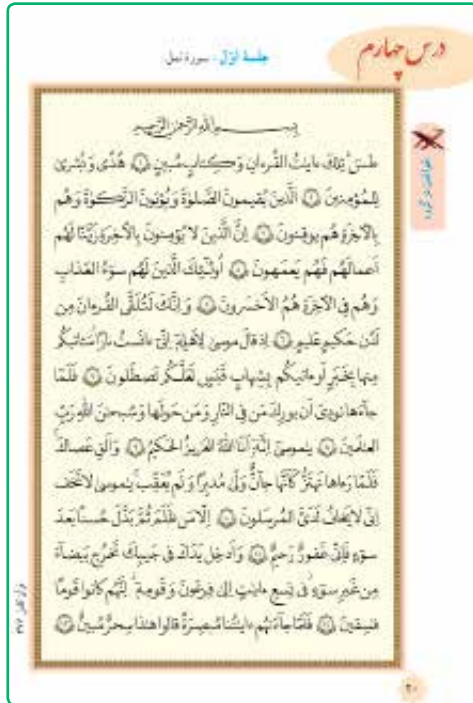 درس چهارم
جلسهٔ اوّل: سورهٔ نمل
بِسْمِ اللهِ الرَّحْمٰنِ الرَّحِيمِ
طس تِلكَ ءايٰتُ القُرءانِ وَكِتابٍ مُبينٍ ١ هُدًى وَبُشرىٰ
لِلمُؤمِنينَ ٢ الَّذينَ يُقيمونَ الصَّلوٰةَ وَيُؤتونَ الزَّكوٰةَ وَهُم
بِالآخِرَةِ هُم يوقِنونَ ٣ اِنَّ الَّذينَ لا يُؤمِنونَ بِالآخِرَةِ زَيَّنّا لَهُم
اَعمالَهُم فَهُم يَعمَهونَ ٤ اُولٰئِكَ الَّذينَ لَهُم سوءُ العَذابِ
وَهُم فِى الآخِرَةِ هُمُ الاَخسَرونَ ٥ وَاِنَّكَ لَتُلَقَّى القُرءانَ مِن
لَدُن حَكيمٍ عَليمٍ ٦ اِذ قالَ موسىٰ لِاَهلِهٖ اِنّى ءانَستُ نارًا سَـٔاتيكُم
مِنها بِخَبَرٍ اَو ءاتيكُم بِشِهابٍ قَبَسٍ لَعَلَّكُم تَصطَلونَ ٧ فَلَمّا
جآءَها نودِىَ اَن بورِكَ مَن فِى النّارِ وَمَن حَولَها وَسُبحٰنَ اللهِ رَبِّ
العٰلَمينَ ٨ يٰموسىٰ اِنَّهٗ اَنَا اللهُ العَزيزُ الحَكيمُ ٩ وَاَلقِ عَصاكَ
فَلَمّا رَءاها تَهتَزُّ كَاَنَّها جآنٌّ وَلّىٰ مُدبِرًا وَلَم يُعَقِّب يٰموسىٰ لا تَخَف
اِنّى لا يَخافُ لَدَىَّ المُرسَلونَ ١٠ اِلّا مَن ظَلَمَ ثُمَّ بَدَّلَ حُسنًا بَعدَ
سوءٍ فَاِنّى غَفورٌ رَحيمٌ ١١ وَاَدخِل يَدَكَ فى جَيبِكَ تَخرُج بَيضآءَ
مِن غَيرِ سوءٍ فى تِسعِ ءايٰتٍ اِلىٰ فِرعَونَ وَقَومِهٖ اِنَّهُم كانوا قَومًا
فٰسِقينَ ١٢ فَلَمّا جآءَتهُم ءايٰتُنا مُبصِرَةً قالوا هٰذا سِحرٌ مُبينٌ ١٣
٢٠